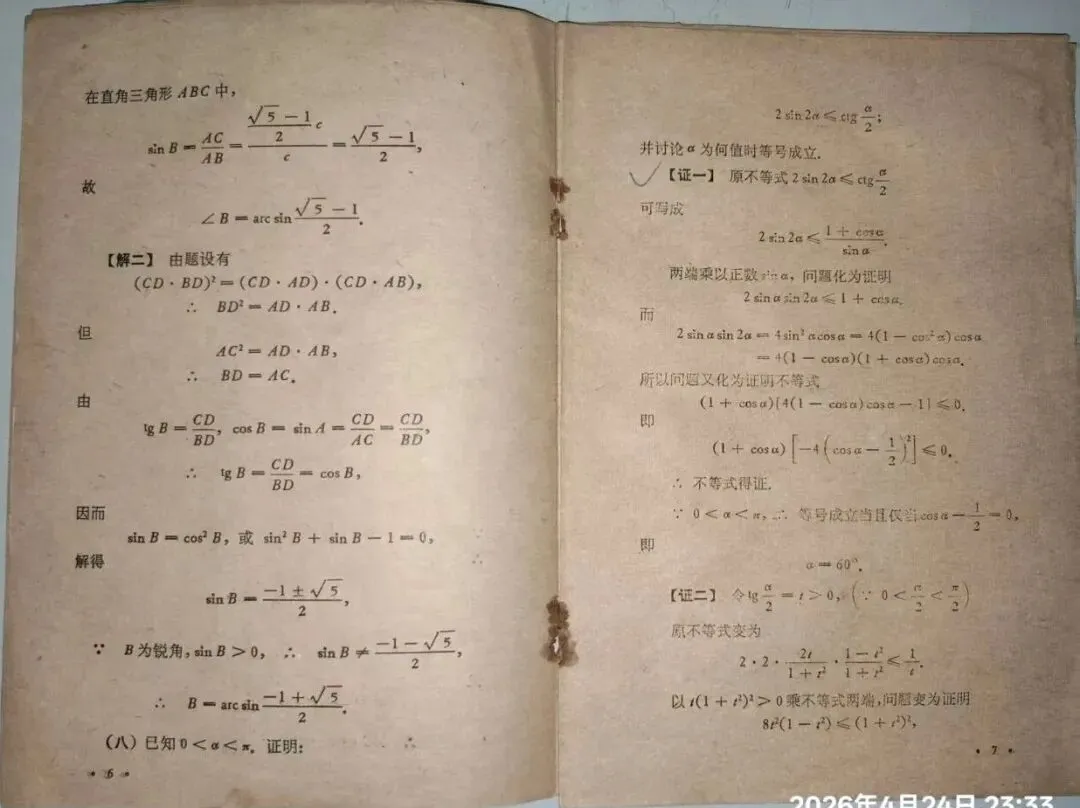 在直角三角形 ABC 中，
sin B = AC/AB = ((√5 − 1)/2 c)/c = (√5 − 1)/2，
故
∠B = arc sin (√5 − 1)/2.
【解二】 由题设有
(CD · BD)² = (CD · AD) · (CD · AB)，
∴ BD² = AD · AB.
但
AC² = AD · AB，
∴ BD = AC.
由
tg B = CD/BD，cos B = sin A = CD/AC = CD/BD，
∴ tg B = CD/BD = cos B，
因而
sin B = cos² B，或 sin² B + sin B − 1 = 0，
解得
sin B = (−1 ± √5)/2，
∵ B 为锐角，sin B > 0， ∴ sin B ≠ (−1 − √5)/2，
∴ B = arc sin (−1 + √5)/2.
（八）已知 0 < α < π. 证明：
• 6 •
2 sin 2α ⩽ ctg α/2；
并讨论 α 为何值时等号成立.
【证一】 原不等式 2 sin 2α ⩽ ctg α/2
可写成
2 sin 2α ⩽ (1 + cos α)/sin α.
两端乘以正数 sin α，问题化为证明
2 sin α sin 2α ⩽ 1 + cos α.
而
2 sin α sin 2α = 4 sin² α cos α = 4(1 − cos² α) cos α
= 4(1 − cos α)(1 + cos α) cos α.
所以问题又化为证明不等式
(1 + cos α){4(1 − cos α) cos α − 1} ⩽ 0.
即
(1 + cos α) [−4(cos α − 1/2)²] ⩽ 0.
∴ 不等式得证.
∵ 0 < α < π，∴ 等号成立当且仅当 cos α − 1/2 = 0，
即
α = 60°.
【证二】 令 tg α/2 = t > 0，(∵ 0 < α/2 < π/2)
原不等式变为
2 · 2 · 2t/(1 + t²) · (1 − t²)/(1 + t²) ⩽ 1/t.
以 t(1 + t²)² > 0 乘不等式两端，问题变为证明
8t²(1 − t²) ⩽ (1 + t²)²，
• 7 •
2026年4月24日 23:33